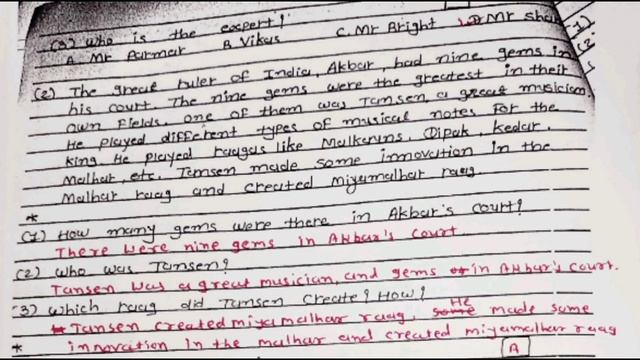 (3) Who is the expert?
A. Mr Parmar B. Vikas C. Mr Bright D Mr
(2) The great ruler of India, Akbar, had nine gems in
his court. The nine gems were the greatest in their
own fields. one of them was Tansen, a great musician
He played different types of musical notes for the
king. He played raagas like Malkauns, Dipak, kedar,
Malhar, etc. Tansen made some innovation in the
Malhar raag and created miyamalhar raag.
*
(1) How many gems were there in Akbar's court?
There were nine gems in Akbar's court
(2) Who was Tansen?
Tansen was a great musician, and gems in Akbar's court.
(3) Which raag did Tansen create? How?
Tansen created miyamalhar raag, He made some
* innovation in the malhar and created miyamalhar raag
A
(1)
(2